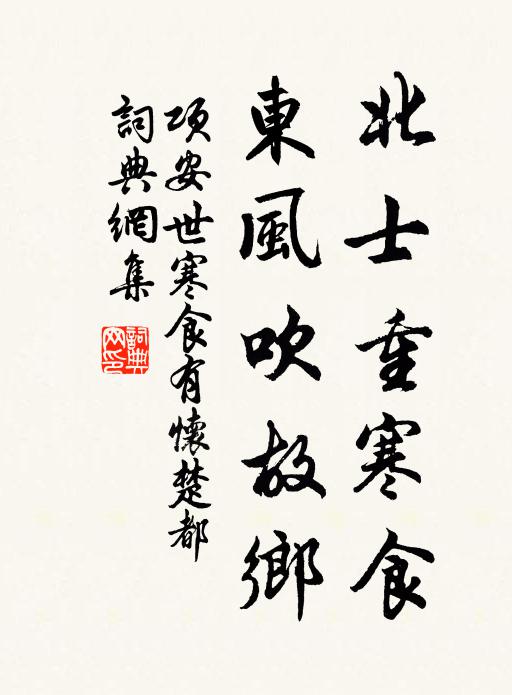 北士重寒食
東風吹故鄉
項安世寒食有懷楚都
詞典網集
詞典网印